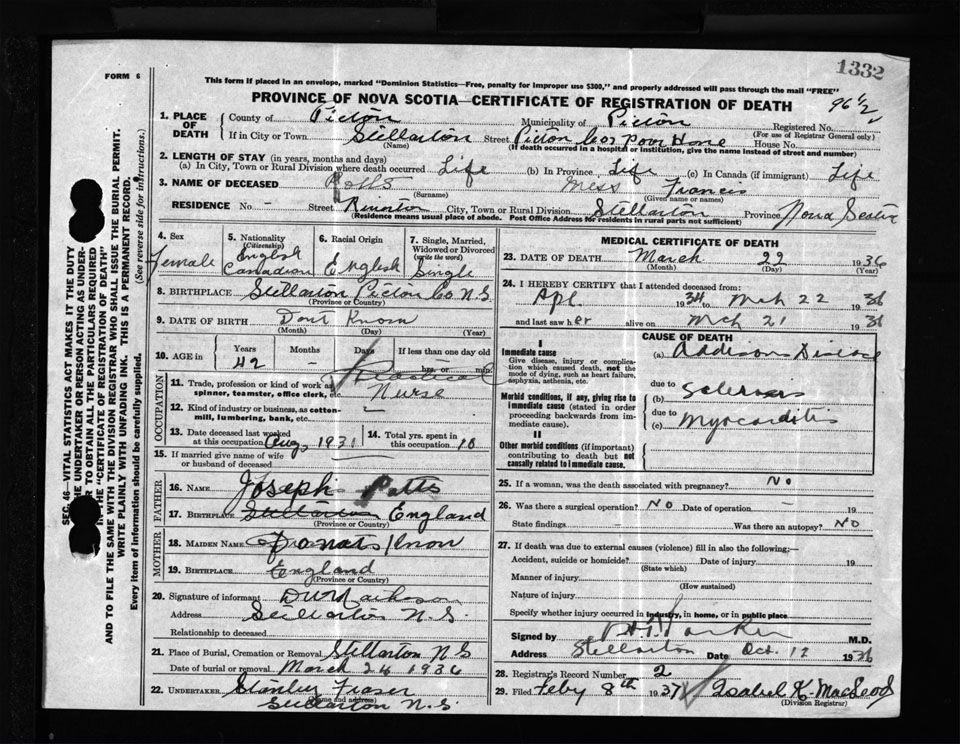 1332
FORM 6
This form if placed in an envelope, marked "Dominion Statistics—Free, penalty for improper use $300," and properly addressed will pass through the mail "FREE"
96 1/2
PROVINCE OF NOVA SCOTIA—CERTIFICATE OF REGISTRATION OF DEATH
1. PLACE OF DEATH County of Pictou Municipality of Pictou Registered No.
(For use of Registrar General only)
If in City or Town Stellarton Street Pictou Co's Poor Home House No.
(Name) (If death occurred in a hospital or institution, give the name instead of street and number)
2. LENGTH OF STAY (in years, months and days)
(a) In City, Town or Rural Division where death occurred Life (b) In Province Life (c) In Canada (if immigrant) Life
3. NAME OF DECEASED Potts Miss Francis
(Surname) (Given name or names)
RESIDENCE No. - Street City, Town or Rural Division Stellarton Province Nova Scotia
(Residence means usual place of abode. Post Office Address for residents in rural parts not sufficient)
SEC. 46—VITAL STATISTICS ACT MAKES IT THE DUTY
THE UNDERTAKER OR PERSON ACTING AS UNDER-
R TO OBTAIN ALL THE PARTICULARS REQUIRED
IN THE "CERTIFICATE OF REGISTRATION OF DEATH"
AND TO FILE THE SAME WITH THE DIVISION REGISTRAR WHO SHALL ISSUE THE BURIAL PERMIT.
WRITE PLAINLY WITH UNFADING INK. THIS IS A PERMANENT RECORD.
Every item of information should be carefully supplied. (See reverse side for instructions.)
4. Sex Female
5. Nationality (Citizenship) English Canadian
6. Racial Origin English
7. Single, Married, Widowed or Divorced (write the word) Single
8. BIRTHPLACE Stellarton Pictou Co N.S.
(Province or Country)
9. DATE OF BIRTH Dont Know
(Month) (Day) (Year)
10. AGE in Years 42 Months - Days If less than one day old
hrs. or min.
OCCUPATION
11. Trade, profession or kind of work as spinner, teamster, office clerk, etc. Practical Nurse
12. Kind of industry or business, as cotton-mill, lumbering, bank, etc.
13. Date deceased last worked at this occupation Aug 1931
14. Total yrs. spent in this occupation 10
15. If married give name of wife or husband of deceased
FATHER
16. NAME Joseph Potts
17. BIRTHPLACE Stellarton England
(Province or Country)
MOTHER
18. MAIDEN NAME Do not Know
19. BIRTHPLACE England
(Province or Country)
20. Signature of informant
Address Stellarton N.S.
Relationship to deceased
21. Place of Burial, Cremation or Removal Stellarton N S
Date of burial or removal March 24 1936
22. UNDERTAKER Stanley Fraser
(Name and address)
Stellarton N.S.
MEDICAL CERTIFICATE OF DEATH
23. DATE OF DEATH March 22 1936
(Month) (Day) (Year)
24. I HEREBY CERTIFY that I attended deceased from:
Apl 1934 to Mch 22 1936
and last saw her alive on Mch 21 1936
CAUSE OF DEATH
I
Immediate cause
Give disease, injury or complication which caused death, not the mode of dying, such as heart failure, asphyxia, asthenia, etc.
(a) Addisons Disease
due to
Morbid conditions, if any, giving rise to Immediate cause (stated in order proceeding backwards from immediate cause).
(b) Sclerosis
due to
(c) Myocarditis
II
Other morbid conditions (if important) contributing to death but not causally related to Immediate cause.
25. If a woman, was the death associated with pregnancy? No
26. Was there a surgical operation? No Date of operation 19
State findings - Was there an autopsy? No
27. If death was due to external causes (violence) fill in also the following:—
Accident, suicide or homicide? Date of injury 19
(State which)
Manner of injury
(How sustained)
Nature of injury
Specify whether injury occurred in industry, in home, or in public place
Signed by M.D.
Address Stellarton Date Oct. 12 1936
28. Registrar's Record Number 2
29. Filed Feby 8th 1937 Isabel K. MacLeod
(Division Registrar)